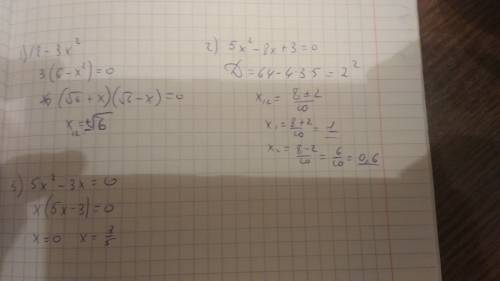 1) 18 - 3x²
3(6-x²)=0
(√6+x)(√6-x)=0
x₁₂=±√6
2) 5x²-8x+3=0
D=64-4·3·5=2²
x₁₂= (8±2)/10
x₁= (8+2)/10 = 1
x₂= (8-2)/10 = 6/10 = 0,6
3) 5x²-3x=0
x(5x-3)=0
x=0 x= 3/5